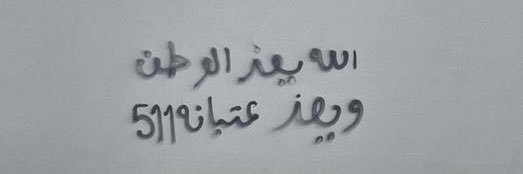 الله يعز الوطن
ويعز عتبانه511